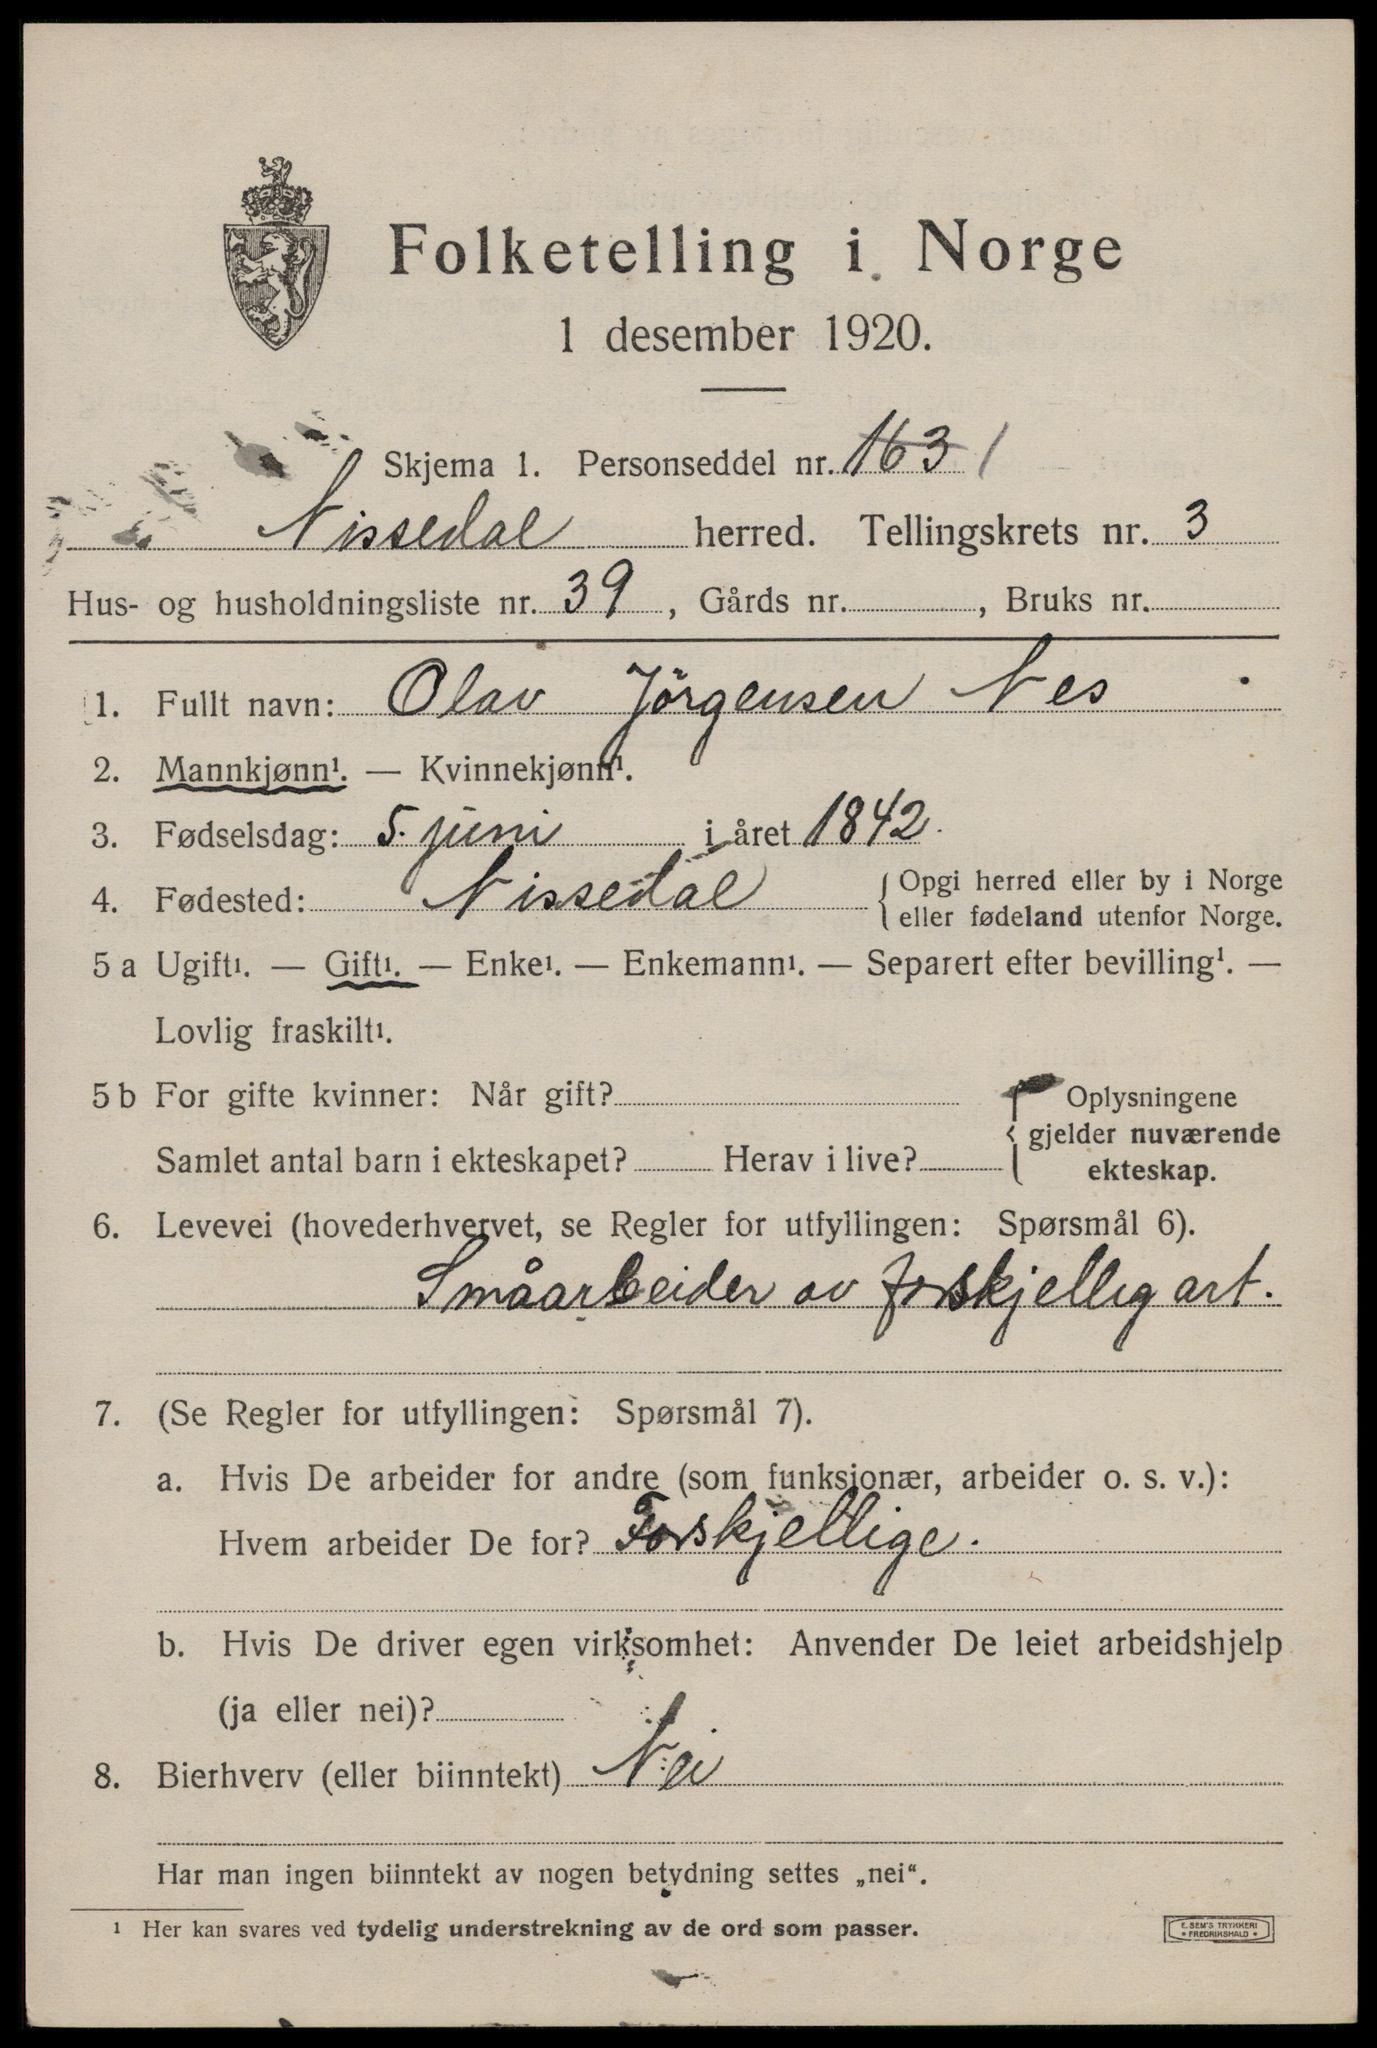 Folketelling i Norge
1 desember 1920.
Skjema 1. Personseddel nr. 163 1
Nissedal herred. Tellingskrets nr. 3
Hus- og husholdningsliste nr. 39, Gårds nr. , Bruks nr.
1. Fullt navn: Olav Jörgensen Nes
2. Mannkjønn¹. — Kvinnekjønn¹.
3. Fødselsdag: 5. juni i året 1842.
4. Fødested: Nissedal { Opgi herred eller by i Norge
eller fødeland utenfor Norge.
5 a Ugift¹. — Gift¹. — Enke¹. — Enkemann¹. — Separert efter bevilling¹. —
Lovlig fraskilt¹.
5 b For gifte kvinner: Når gift? { Oplysningene
gjelder nuværende
Samlet antal barn i ekteskapet? Herav i live?
ekteskap.
6. Levevei (hovederhvervet, se Regler for utfyllingen: Spørsmål 6).
Småarbeider av forskjellig art.
7. (Se Regler for utfyllingen: Spørsmål 7).
a. Hvis De arbeider for andre (som funksjonær, arbeider o. s. v.):
Hvem arbeider De for? Forskjellige.
b. Hvis De driver egen virksomhet: Anvender De leiet arbeidshjelp
(ja eller nei)?
8. Bierhverv (eller biinntekt) Nei
Har man ingen biinntekt av nogen betydning settes „nei“.
¹ Her kan svares ved tydelig understrekning av de ord som passer.
E. SEM'S TRYKKERI
* FREDRIKSHALD *